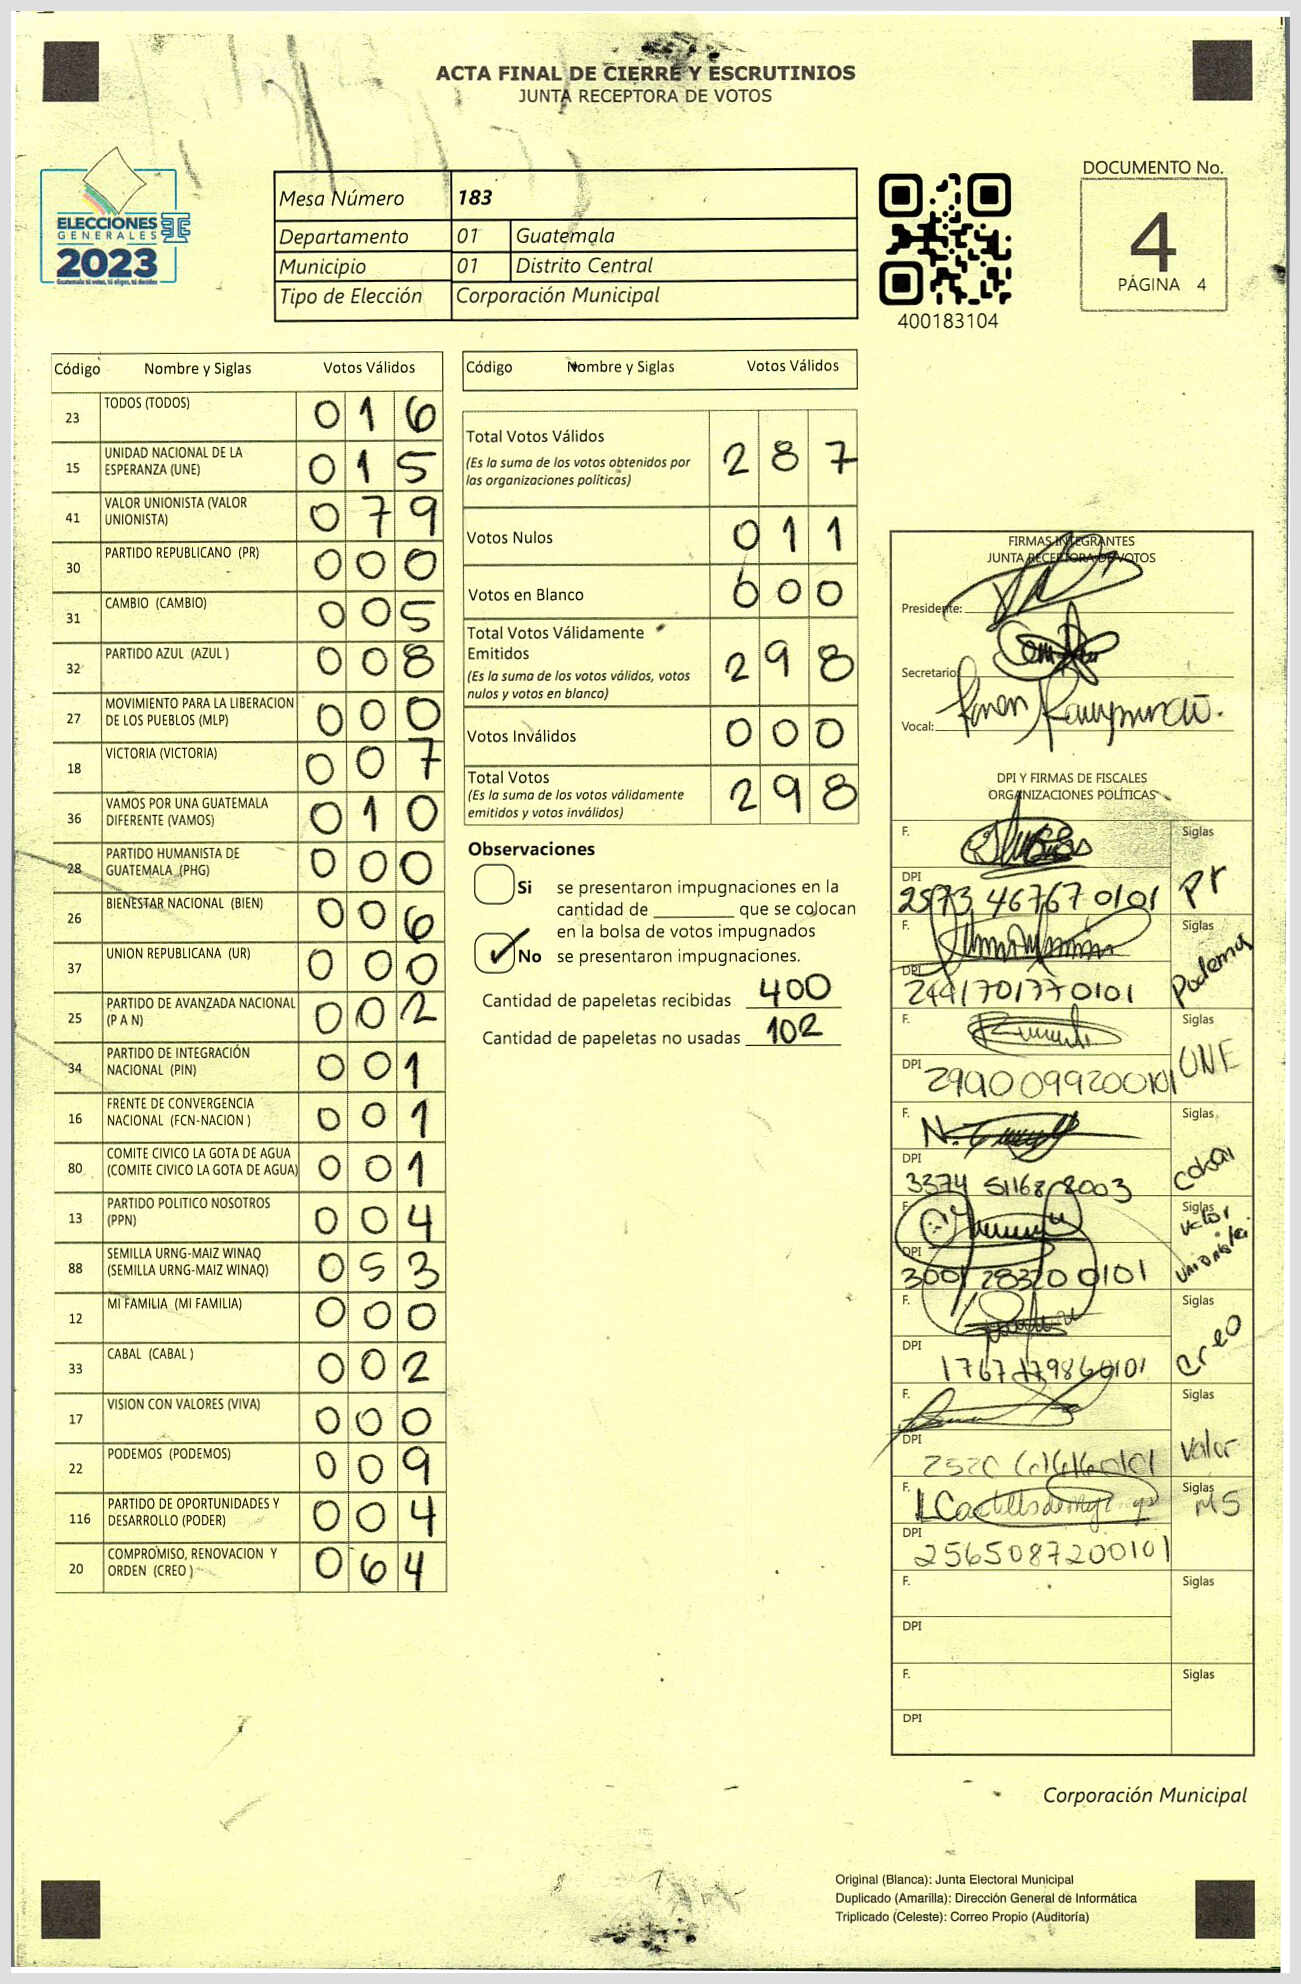 ACTA FINAL DE CIERRE Y ESCRUTINIOS
JUNTA RECEPTORA DE VOTOS
ELECCIONES
GENERALES
2023
Mesa Número 183
Departamento 01 Guatemala
Municipio 01 Distrito Central
Tipo de Elección Corporación Municipal
400183104
DOCUMENTO No.
4
PÁGINA 4
Código Nombre y Siglas Votos Válidos
23 TODOS (TODOS) 0 1 6
15 UNIDAD NACIONAL DE LA ESPERANZA (UNE) 0 1 5
41 VALOR UNIONISTA (VALOR UNIONISTA) 0 7 9
30 PARTIDO REPUBLICANO (PR) 0 0 0
31 CAMBIO (CAMBIO) 0 0 5
32 PARTIDO AZUL (AZUL ) 0 0 8
27 MOVIMIENTO PARA LA LIBERACION DE LOS PUEBLOS (MLP) 0 0 0
18 VICTORIA (VICTORIA) 0 0 7
36 VAMOS POR UNA GUATEMALA DIFERENTE (VAMOS) 0 1 0
28 PARTIDO HUMANISTA DE GUATEMALA (PHG) 0 0 0
26 BIENESTAR NACIONAL (BIEN) 0 0 6
37 UNION REPUBLICANA (UR) 0 0 0
25 PARTIDO DE AVANZADA NACIONAL (P A N) 0 0 2
34 PARTIDO DE INTEGRACIÓN NACIONAL (PIN) 0 0 1
16 FRENTE DE CONVERGENCIA NACIONAL (FCN-NACION ) 0 0 1
80 COMITE CIVICO LA GOTA DE AGUA (COMITE CIVICO LA GOTA DE AGUA) 0 0 1
13 PARTIDO POLITICO NOSOTROS (PPN) 0 0 4
88 SEMILLA URNG-MAIZ WINAQ (SEMILLA URNG-MAIZ WINAQ) 0 5 3
12 MI FAMILIA (MI FAMILIA) 0 0 0
33 CABAL (CABAL ) 0 0 2
17 VISION CON VALORES (VIVA) 0 0 0
22 PODEMOS (PODEMOS) 0 0 9
116 PARTIDO DE OPORTUNIDADES Y DESARROLLO (PODER) 0 0 4
20 COMPROMISO, RENOVACION Y ORDEN (CREO ) 0 6 4
Código Nombre y Siglas Votos Válidos
Total Votos Válidos 2 8 7
(Es la suma de los votos obtenidos por
las organizaciones políticas)
Votos Nulos 0 1 1
Votos en Blanco 0 0 0
Total Votos Válidamente
Emitidos 2 9 8
(Es la suma de los votos válidos, votos
nulos y votos en blanco)
Votos Inválidos 0 0 0
Total Votos 2 9 8
(Es la suma de los votos válidamente
emitidos y votos inválidos)
Observaciones
Si se presentaron impugnaciones en la
cantidad de ________ que se colocan
en la bolsa de votos impugnados
No se presentaron impugnaciones.
Cantidad de papeletas recibidas 400
Cantidad de papeletas no usadas 102
FIRMAS INTEGRANTES
JUNTA RECEPTORA DE VOTOS
Presidente:
Secretario:
Vocal:
DPI Y FIRMAS DE FISCALES
ORGANIZACIONES POLÍTICAS
F. Siglas
DPI 2573 46767 0101
F. Siglas Podemos
DPI 2441701770101
F. Siglas UNE
DPI
F. Siglas
DPI 3374 51168 2003
F. Siglas Valor Unionista
DPI
F. Siglas Creo
DPI
F. Siglas Valor
DPI
F. Siglas MS
DPI 2565087200101
F. Siglas
DPI
F. Siglas
DPI
Corporación Municipal
Original (Blanca): Junta Electoral Municipal
Duplicado (Amarilla): Dirección General de Informática
Triplicado (Celeste): Correo Propio (Auditoría)